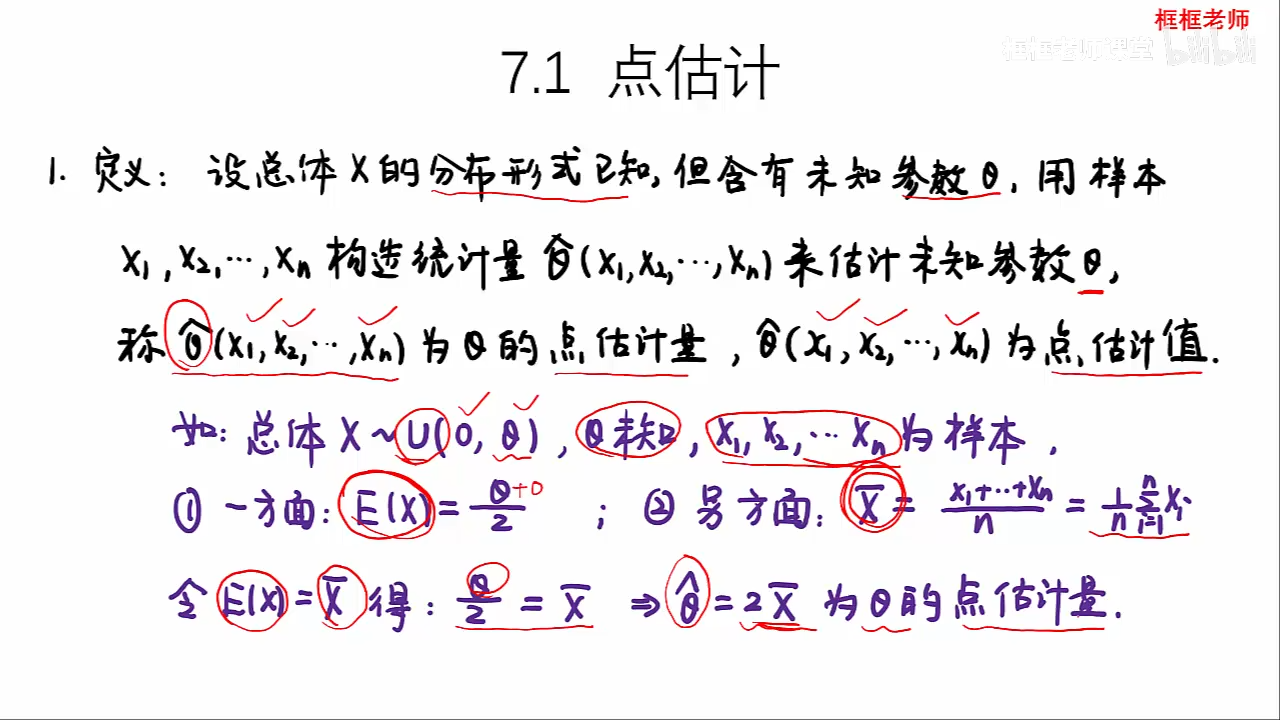 框框老师
框框老师课堂 bilibili
7.1 点估计
1. 定义: 设总体 X 的分布形式已知, 但含有未知参数 θ, 用样本
X₁, X₂, ⋯, Xₙ 构造统计量 θ̂(X₁, X₂, ⋯, Xₙ) 来估计未知参数 θ,
称 θ̂(X₁, X₂, ⋯, Xₙ) 为 θ 的点估计量, θ̂(x₁, x₂, ⋯, xₙ) 为点估计值.
如: 总体 X ~ U(0, θ), θ 未知, X₁, X₂, ⋯ Xₙ 为样本.
① 一方面: E(X) = θ+0/2 ; ② 另方面: X̄ = X₁+⋯+Xₙ/n = 1/n Σᵢ₌₁ⁿ Xᵢ
令 E(X) = X̄ 得: θ/2 = X̄ ⇒ θ̂ = 2X̄ 为 θ 的点估计量.